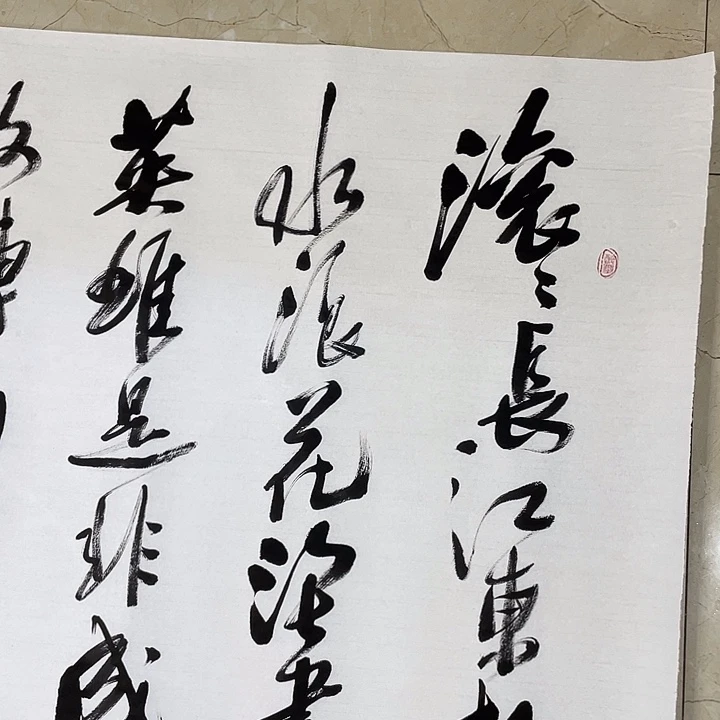 滚々長江東
水浪花淘
英雄是非成